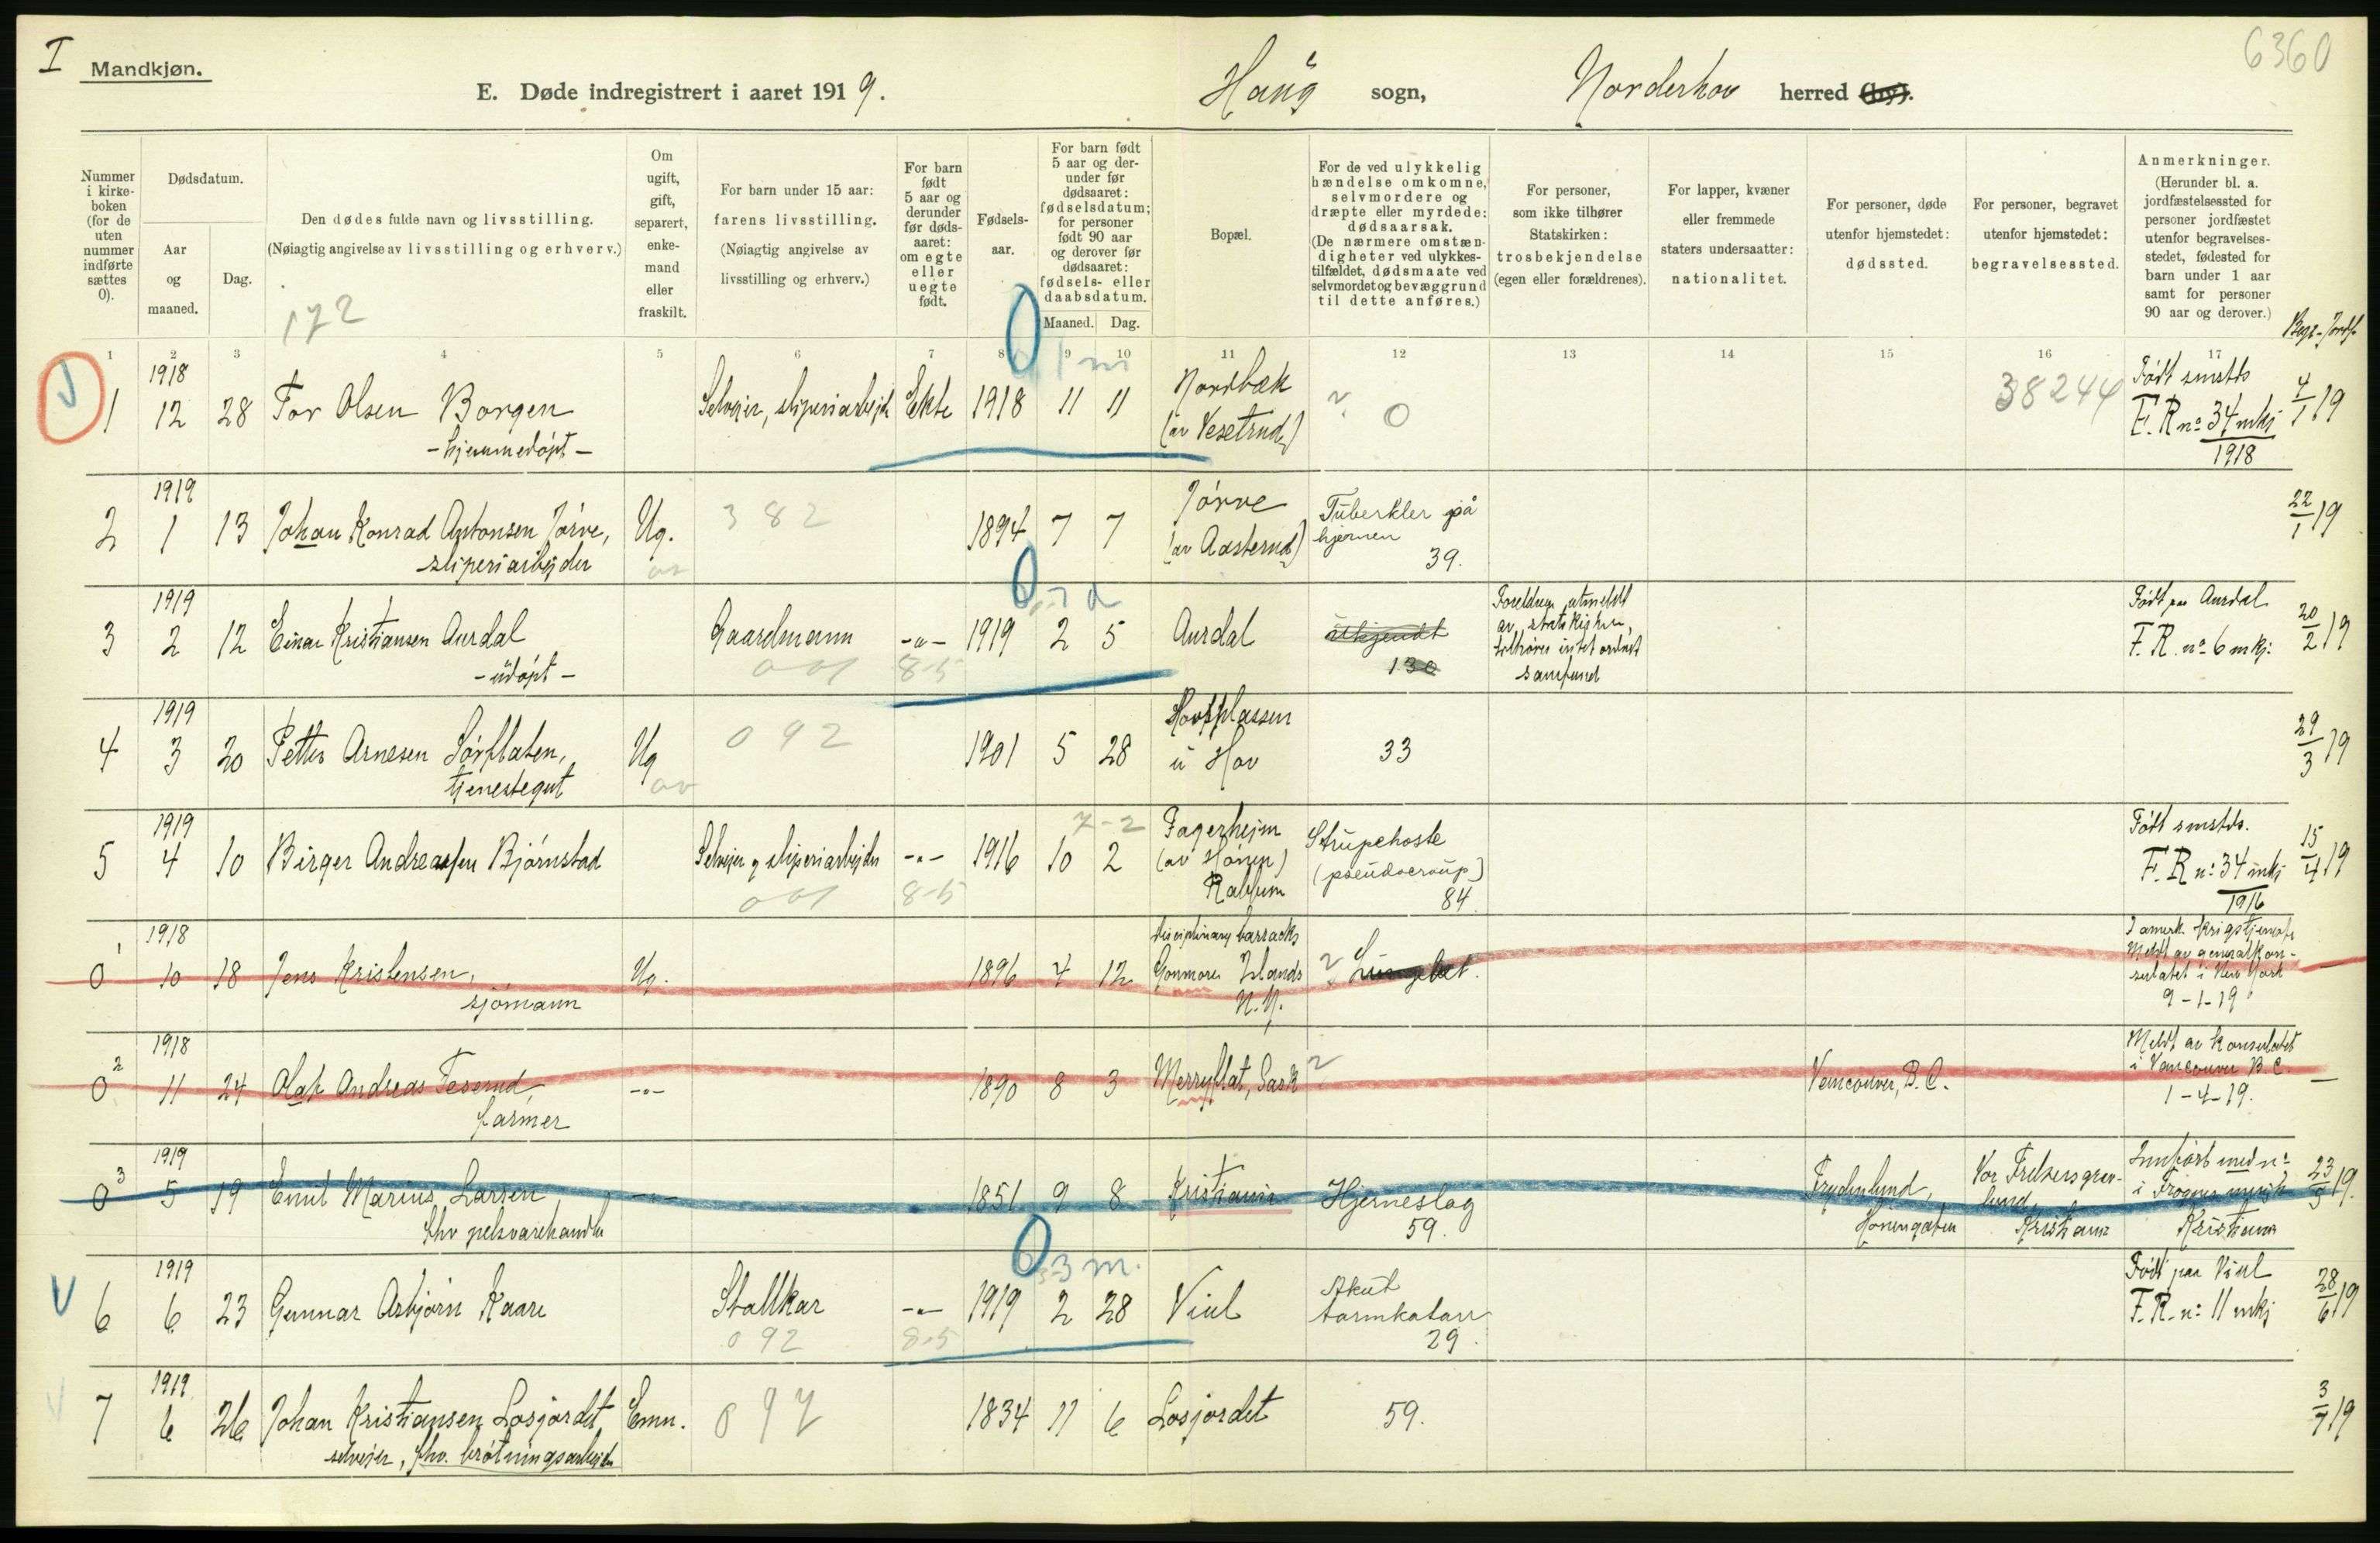 I
Mandkjøn.
6360
E. Døde indregistrert i aaret 1919.
Haug sogn, Norderhov herred (by).
Nummer i kirkeboken (for de uten nummer indførte sættes 0).
Dødsdatum.
Aar og maaned.
Dag.
Den dødes fulde navn og livsstilling.
(Nøiagtig angivelse av livsstilling og erhverv.)
172
Om ugift, gift, separert, enkemand eller fraskilt.
For barn under 15 aar: farens livsstilling.
(Nøiagtig angivelse av livsstilling og erhverv.)
For barn født 5 aar og derunder før dødsaaret: om egte eller uegte født.
Fødselsaar.
For barn født 5 aar og derunder før dødsaaret: fødselsdatum; for personer født 90 aar og derover før dødsaaret: fødsels- eller daabsdatum.
Maaned. Dag.
Bopæl.
For de ved ulykkelig hændelse omkomne, selvmordere og dræpte eller myrdede: dødsaarsak.
(De nærmere omstændigheter ved ulykkestilfældet, dødsmaate ved selvmordet og bevæggrund til dette anføres.)
For personer, som ikke tilhører Statskirken: trosbekjendelse (egen eller forældrenes).
For lapper, kvæner eller fremmede staters undersaatter: nationalitet.
For personer, døde utenfor hjemstedet: dødssted.
For personer, begravet utenfor hjemstedet: begravelsessted.
Anmerkninger.
(Herunder bl. a. jordfæstelsessted for personer jordfæstet utenfor begravelsesstedet, fødested for barn under 1 aar samt for personer 90 aar og derover.)
1 2 3 4 5 6 7 8 9 10 11 12 13 14 15 16 17
1 m
1918
1 12 28 Tor Olsen Borgen Selveier, sliperiarbeider Ekte 1918 11 11 Nordbæk 0 38244 Født smstds 4/1 19
- hjemmedøpt - (av Vesetrud) F. R. no 34 mkj
1918
1919
2 1 13 Johan Konrad Antonsen Jørve, Ug. 382 1894 7 7 Jørve Tuberkler på hjernen 22/1 19
sliperiarbeider (av Aasterud) 39.
7 d
1919
3 2 12 Einar Kristiansen Aurdal Gaardmann -"- 1919 2 5 Aurdal Ukjendt Foreldrene utmeldt av statskirken, tilhører intet ordnet samfund Født paa Aurdal 20/2 19
- udøpt - 001 85 130 F. R. no 6 mkj.
1919
4 3 20 Petter Arnesen Sørflaten, Ug 092 1901 5 28 Hovsplassen 33 29/3 19
tjenestegut u Hov
1919
7-2
5 4 10 Birger Andreassen Bjørnstad Selveier og sliperiarbeider -"- 1916 10 2 Fagerheim Strupehoste Født smstds. 15/4 19
001 85 (av Hønen) (pseudocroup) F. R. no 34 mkj
84 1916
1918
0 1 10 18 Jens Kristensen, Ug. 1896 4 12 disciplinary barracks Lungebet. I amerk. krigstjeneste
sjømann Islands N.Y. Meldt av generalkonsulatet i New York
9-1-19
1918
0 2 11 24 Olaf Andreas Teserud, -"- 1890 8 3 Merryflat, Sask Vancouver, B. C. Meldt av konsulatet i Vancouver B. C.
farmer 1-4-19.
1919
0 3 5 19 Emil Marius Larsen, -"- 1851 9 8 Kristiania Hjerneslag Frydenlund, Vor Frelsers gravlund, Innført med no 23/5 19.
fhv pelsvarehandler 59. Hønengaten Kristiania i Frogner Kristiania
3 m.
1919
6 6 23 Gunnar Asbjørn Kaare Stallkar -"- 1919 2 28 Viul Akut tarmkatarr Født paa Viul 28/6 19
092 85 29. F. R. no 11 mkj
1919
7 6 26 Johan Kristiansen Losjordet Emn. 097 1834 11 6 Losjordet 59. 3/7 19
selveier, fhv. brøtningsarbeider